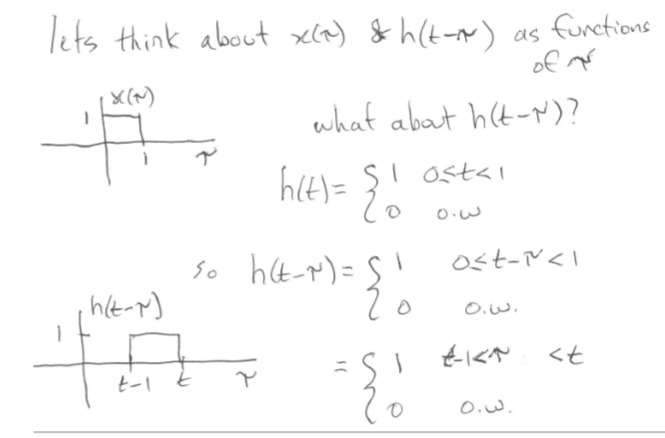 lets think about x(τ) & h(t-τ) as functions
of τ
x(τ)
1
1
τ
what about h(t-τ)?
h(t)= { 1 0≤t<1
0 o.w
so h(t-τ)= { 1 0≤t-τ<1
0 o.w.
h(t-τ)
1
t-1 t τ
= { 1 t-1<τ <t
0 o.w.